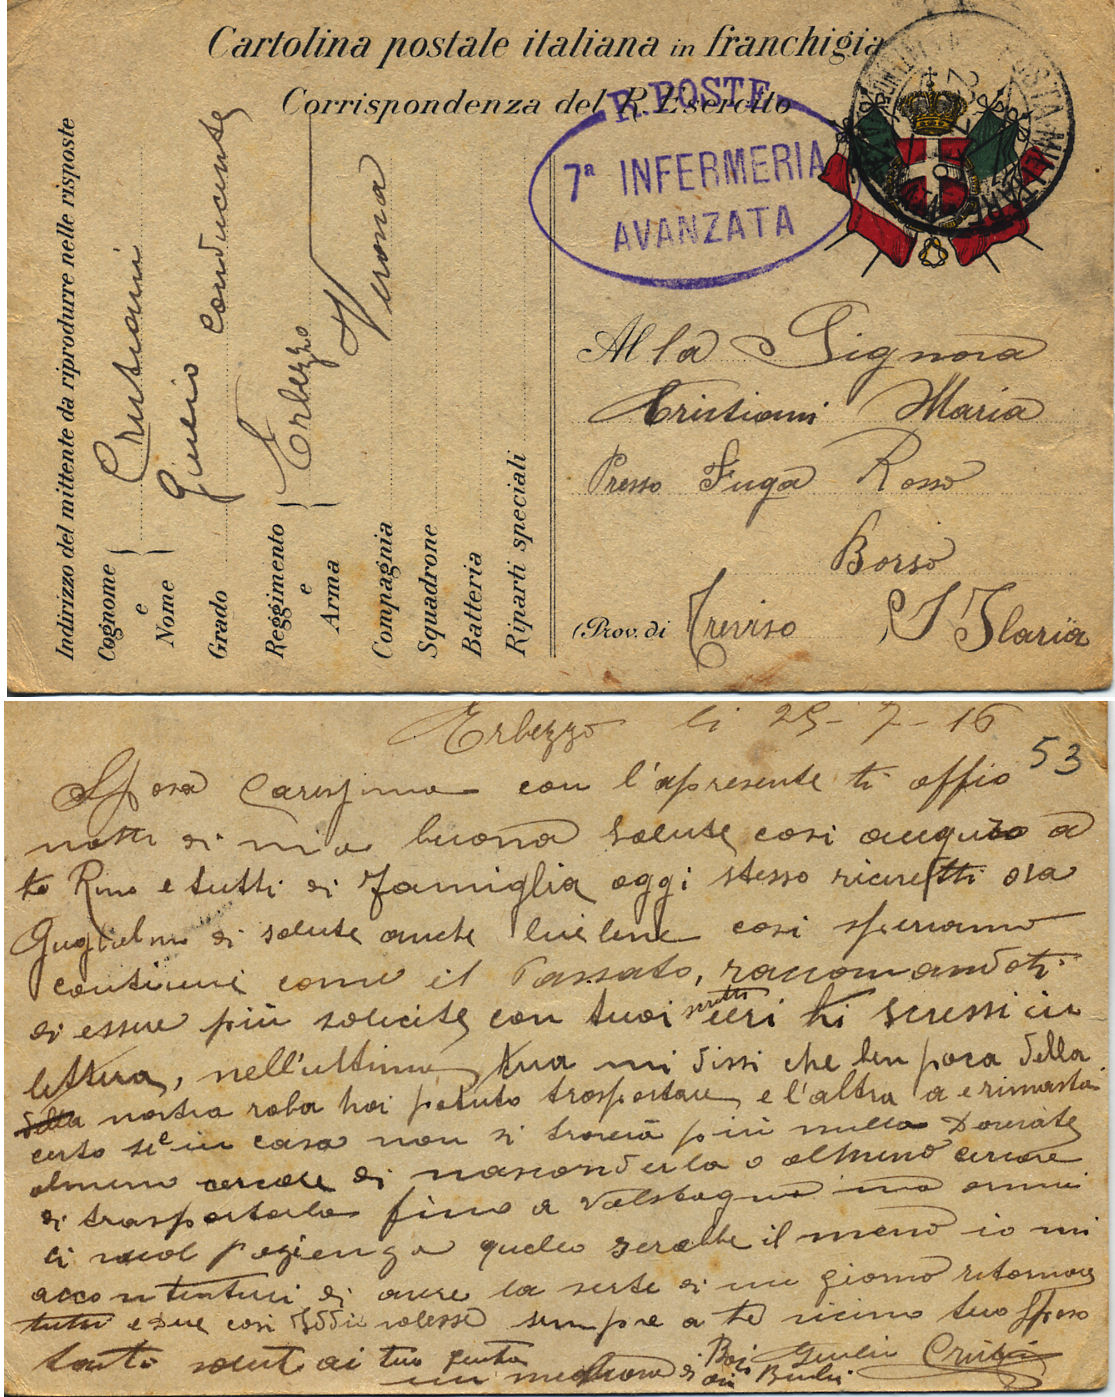 Cartolina postale italiana in franchigia
Corrispondenza del R. Esercito
R. POSTE
7ª INFERMERIA
AVANZATA
POSTA MILITARE
Indirizzo del mittente da riprodurre nelle risposte
Cognome e Nome { Cristiani Giulio
Grado conducente
Reggimento e Arma { Erbezzo
Verona
Compagnia
Squadrone
Batteria
Riparti speciali
Alla Signora
Cristiani Maria
Presso Fuga Rosso
Borso
(Prov. di Treviso S Ilaria
Erbezzo li 25-7-16
53
Sposa Carissima con l'apresente ti offio
di mia buona salute cosi auguro a
te Rino e tutti di famiglia oggi stesso ora
Guglielmo di salute anche lui bene cosi speriamo
continui come il Passato, raccomandoti
di essere più solicita con tuoi scritti ieri ti scressi in
lettera, nell'ultima tua mi dissi che ben poca della
della nostra roba hai potuto trasportare e l'altra a e rimasta
certo se in casa non si trovera più nulla Dovriate
almeno cercare di nasconderla o almeno cercare
di trasportarla fino a Valstagna ma ormai
ci vuol pazienza quello sarebbe il meno io mi
accontenturi di avere la sorte di un giorno ritornare
tutti e due cosi Iddio volesse sempre a te vicino tuo Sposo
tanti saluti ai tuoi Giulio Cristiani
un di Baci